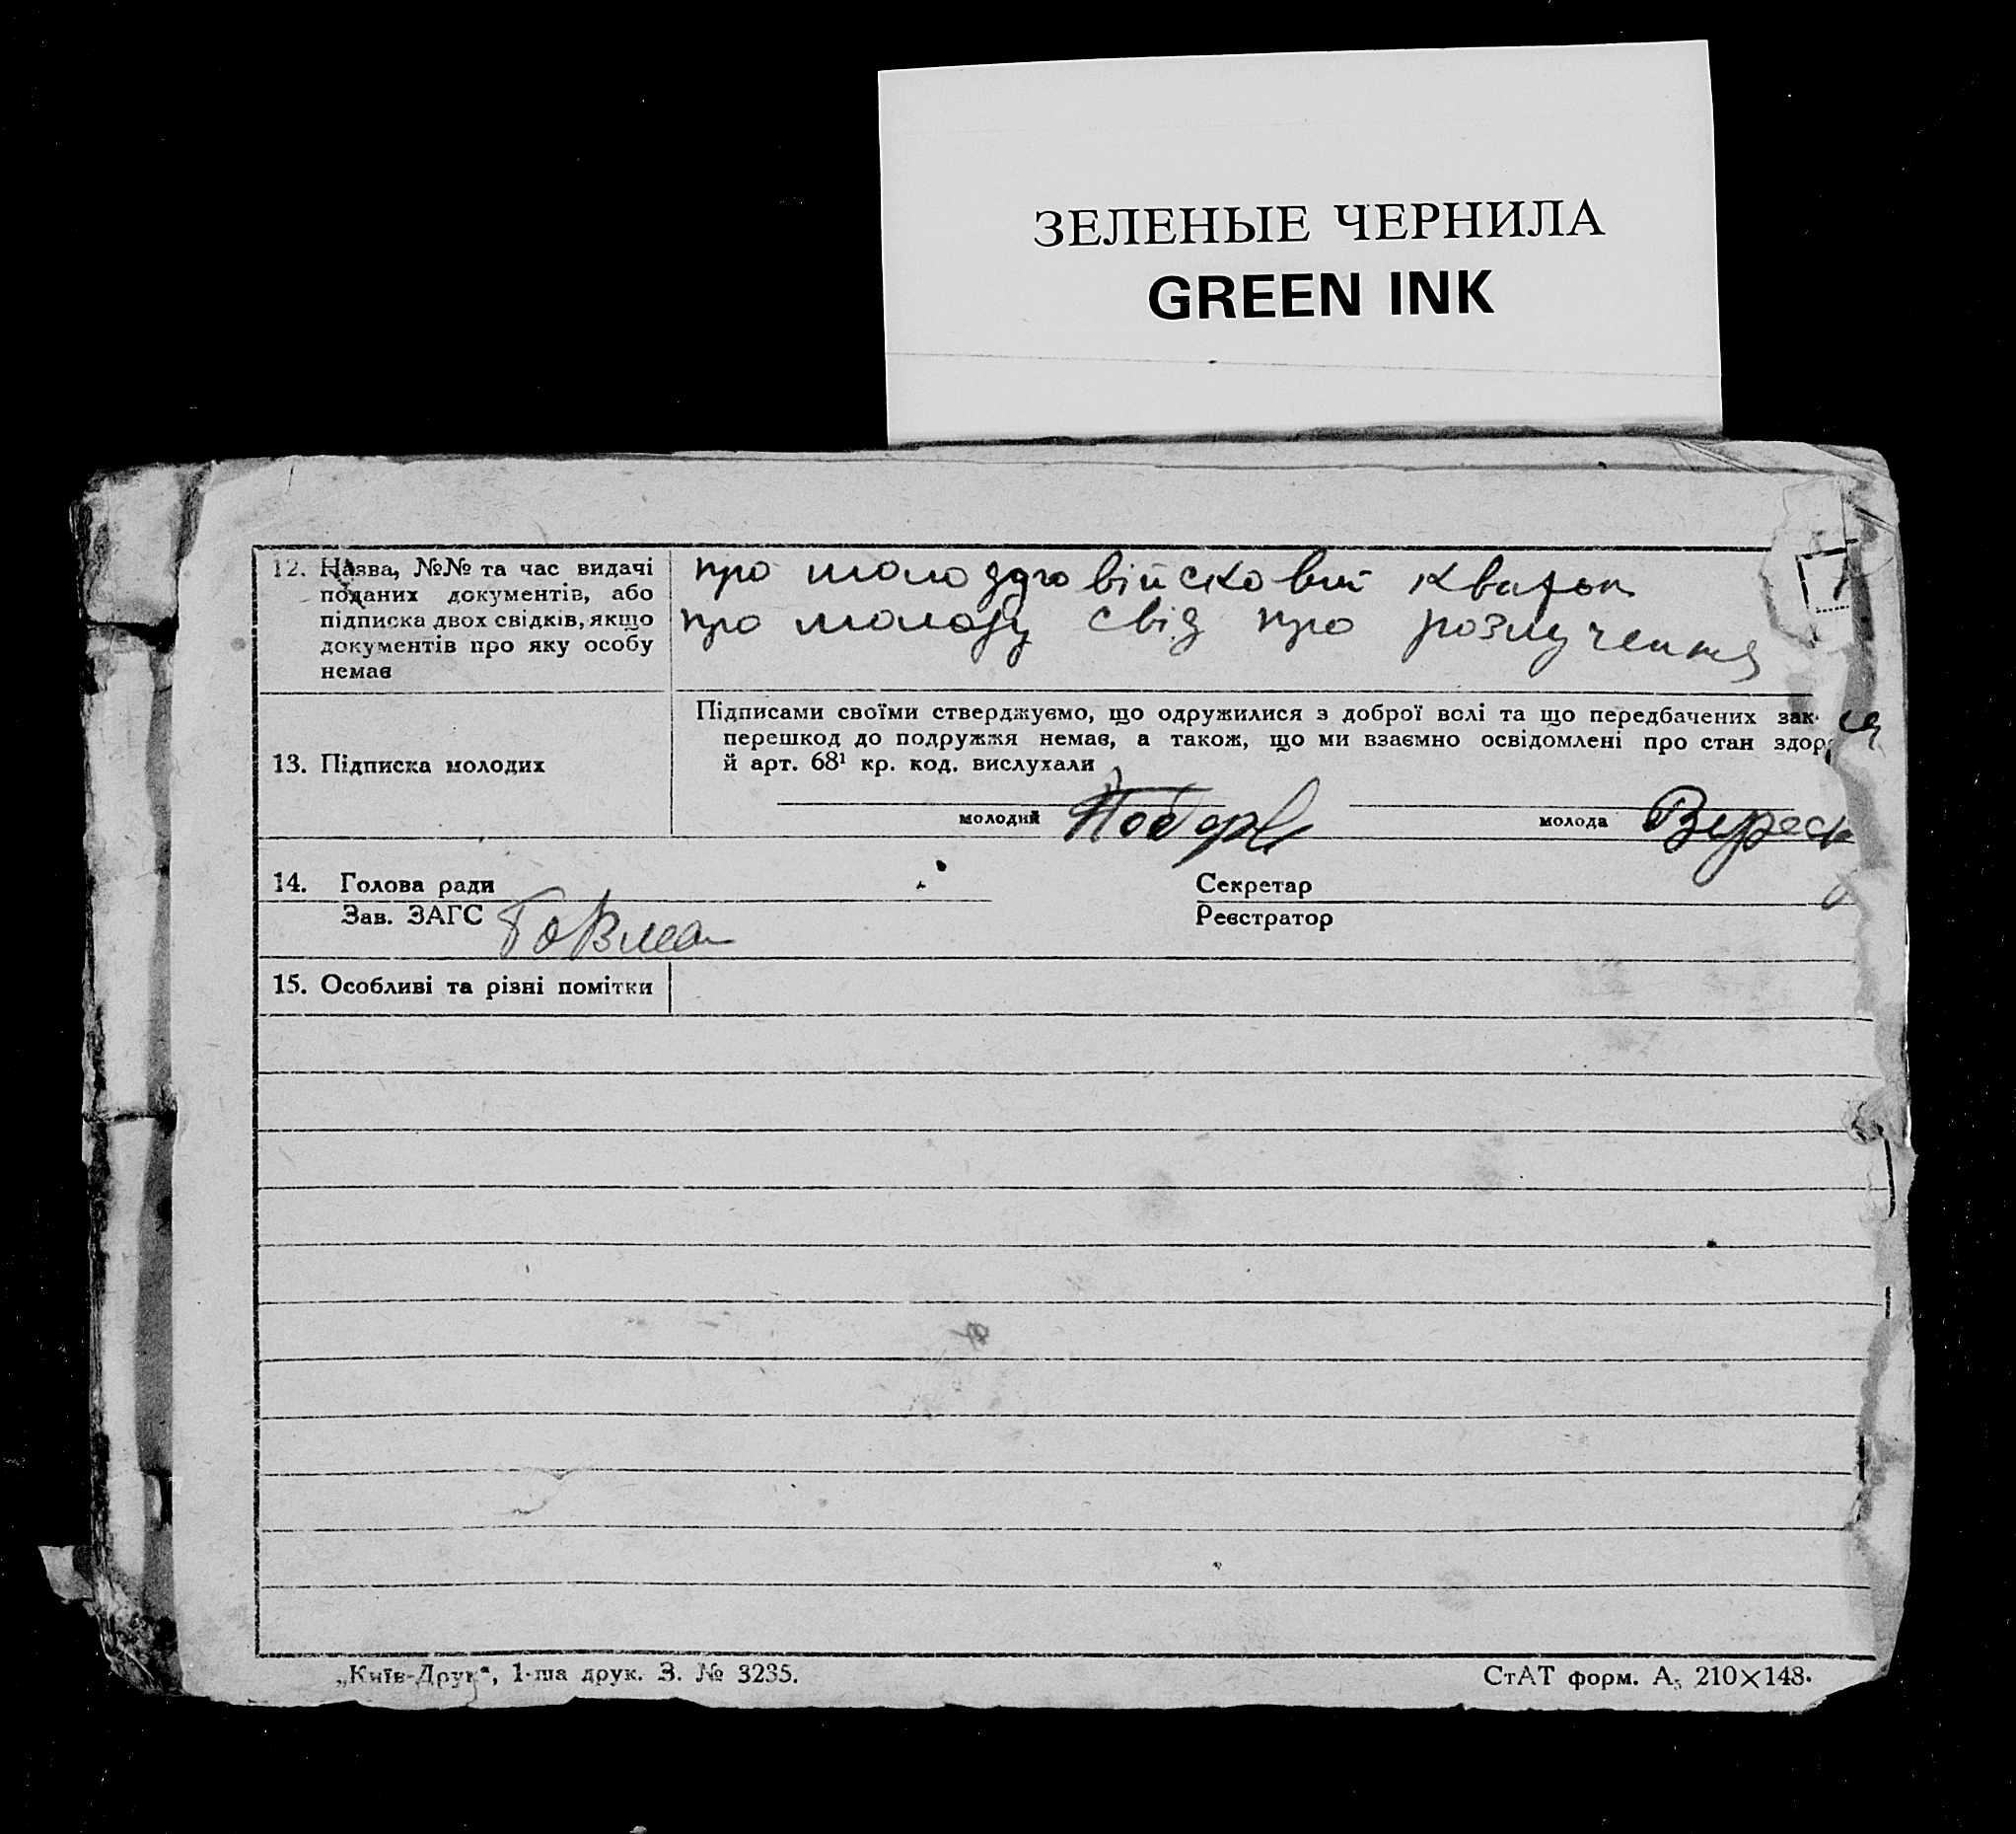 ЗЕЛЕНЫЕ ЧЕРНИЛА
GREEN INK
12. Назва, №№ та час видачі
поданих документів, або
підписка двох свідків, якщо
документів про яку особу
немає
про молодого військовий кваток
про молоду свід про розлучення
13. Підписка молодих
Підписами своїми стверджуємо, що одружилися з доброї волі та що передбачених зак
перешкод до подружжя немає, а також, що ми взаємно освідомлені про стан здор
й арт. 68¹ кр. код. вислухали
молодий
молода
14. Голова ради
Секретар
Зав. ЗАГС
Реєстратор
15. Особливі та різні помітки
„Київ-Друк“, 1-ша друк. З. № 3235.
СтАТ форм. А₅ 210×148.